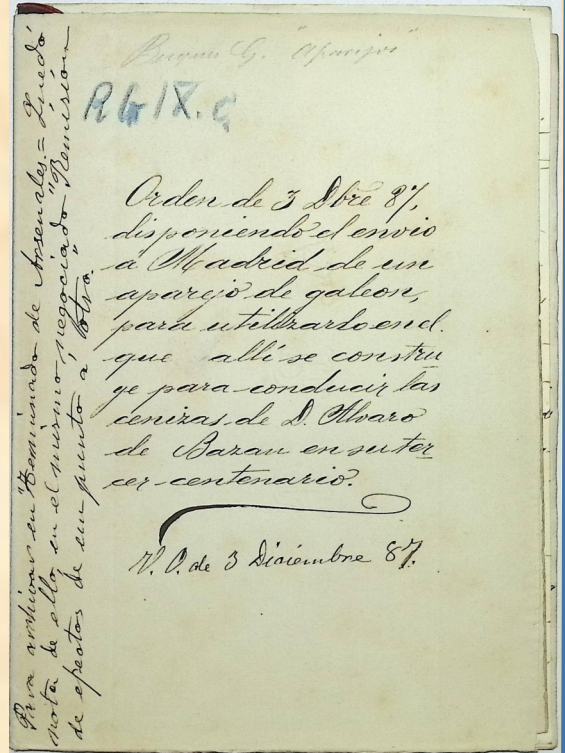 Buques G. "Aparejos"
RG IX. C
Orden de 3 Dbre 87,
disponiendo el envio
á Madrid de un
aparejo de galeon,
para utilizarlo en el
que allí se constru
ye para conducir las
cenizas de D. Alvaro
de Bazan en su ter
cer centenario.
V. O. de 3 Diciembre 87.
Para archivar en "Terminado de Arsenales = Quedó
nota de ello en el mismo negociado "Remisión
de efectos de un punto á otro."